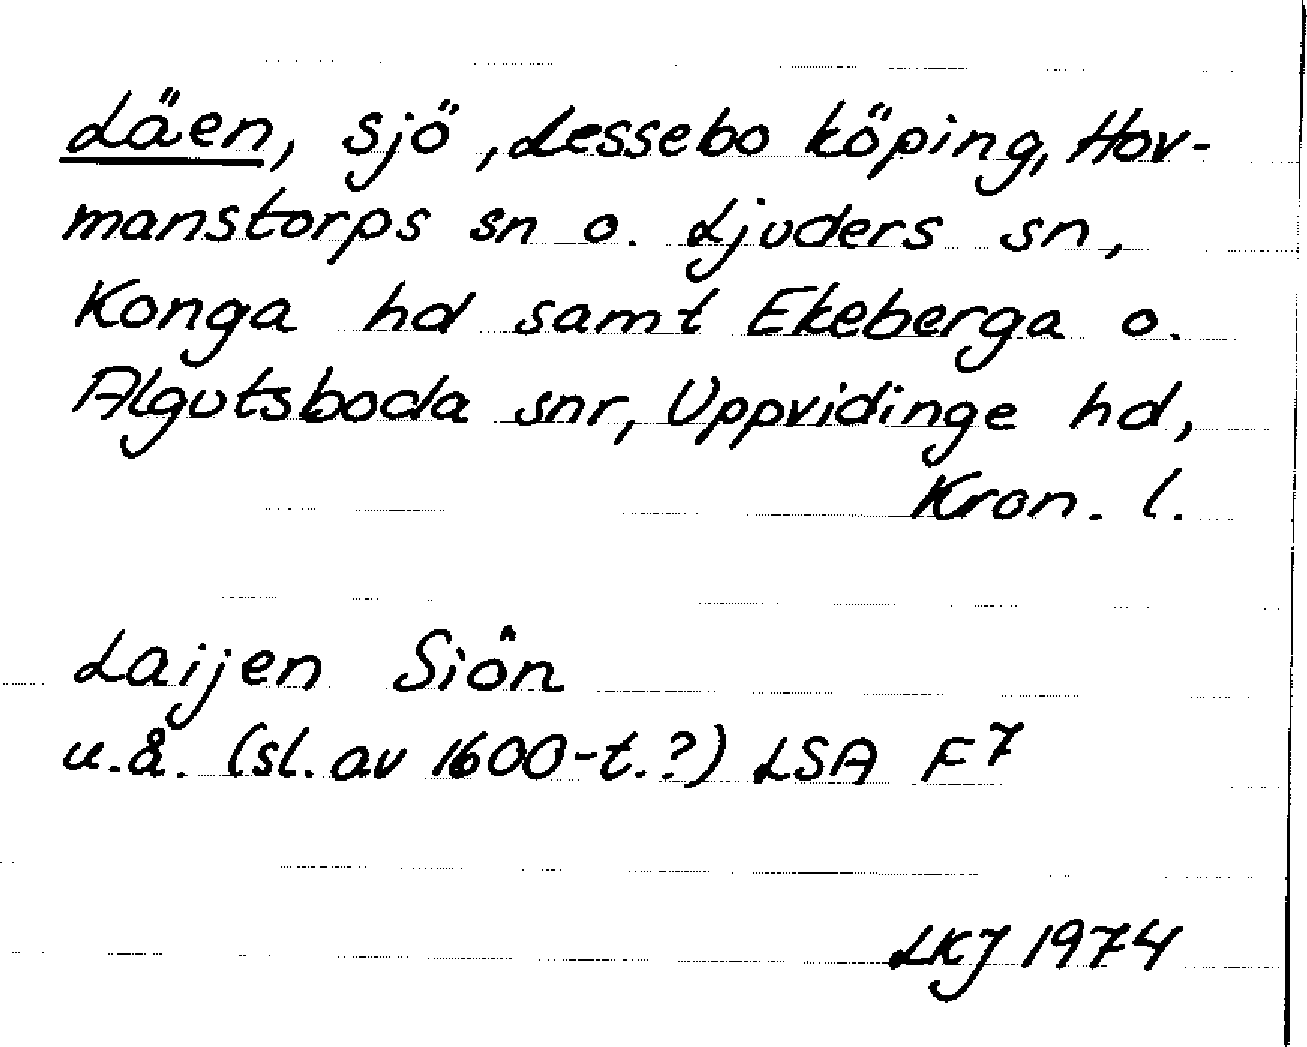 Läen, sjö, Lessebo köping, Hov-
manstorps sn o. Ljuders sn,
Konga hd samt Ekeberga o.
Algutsboda snr, Uppvidinge hd,
Kron. l.
Laijen Siôn
u.å. (sl. av 1600-t.?) LSA F7
LKJ 1974